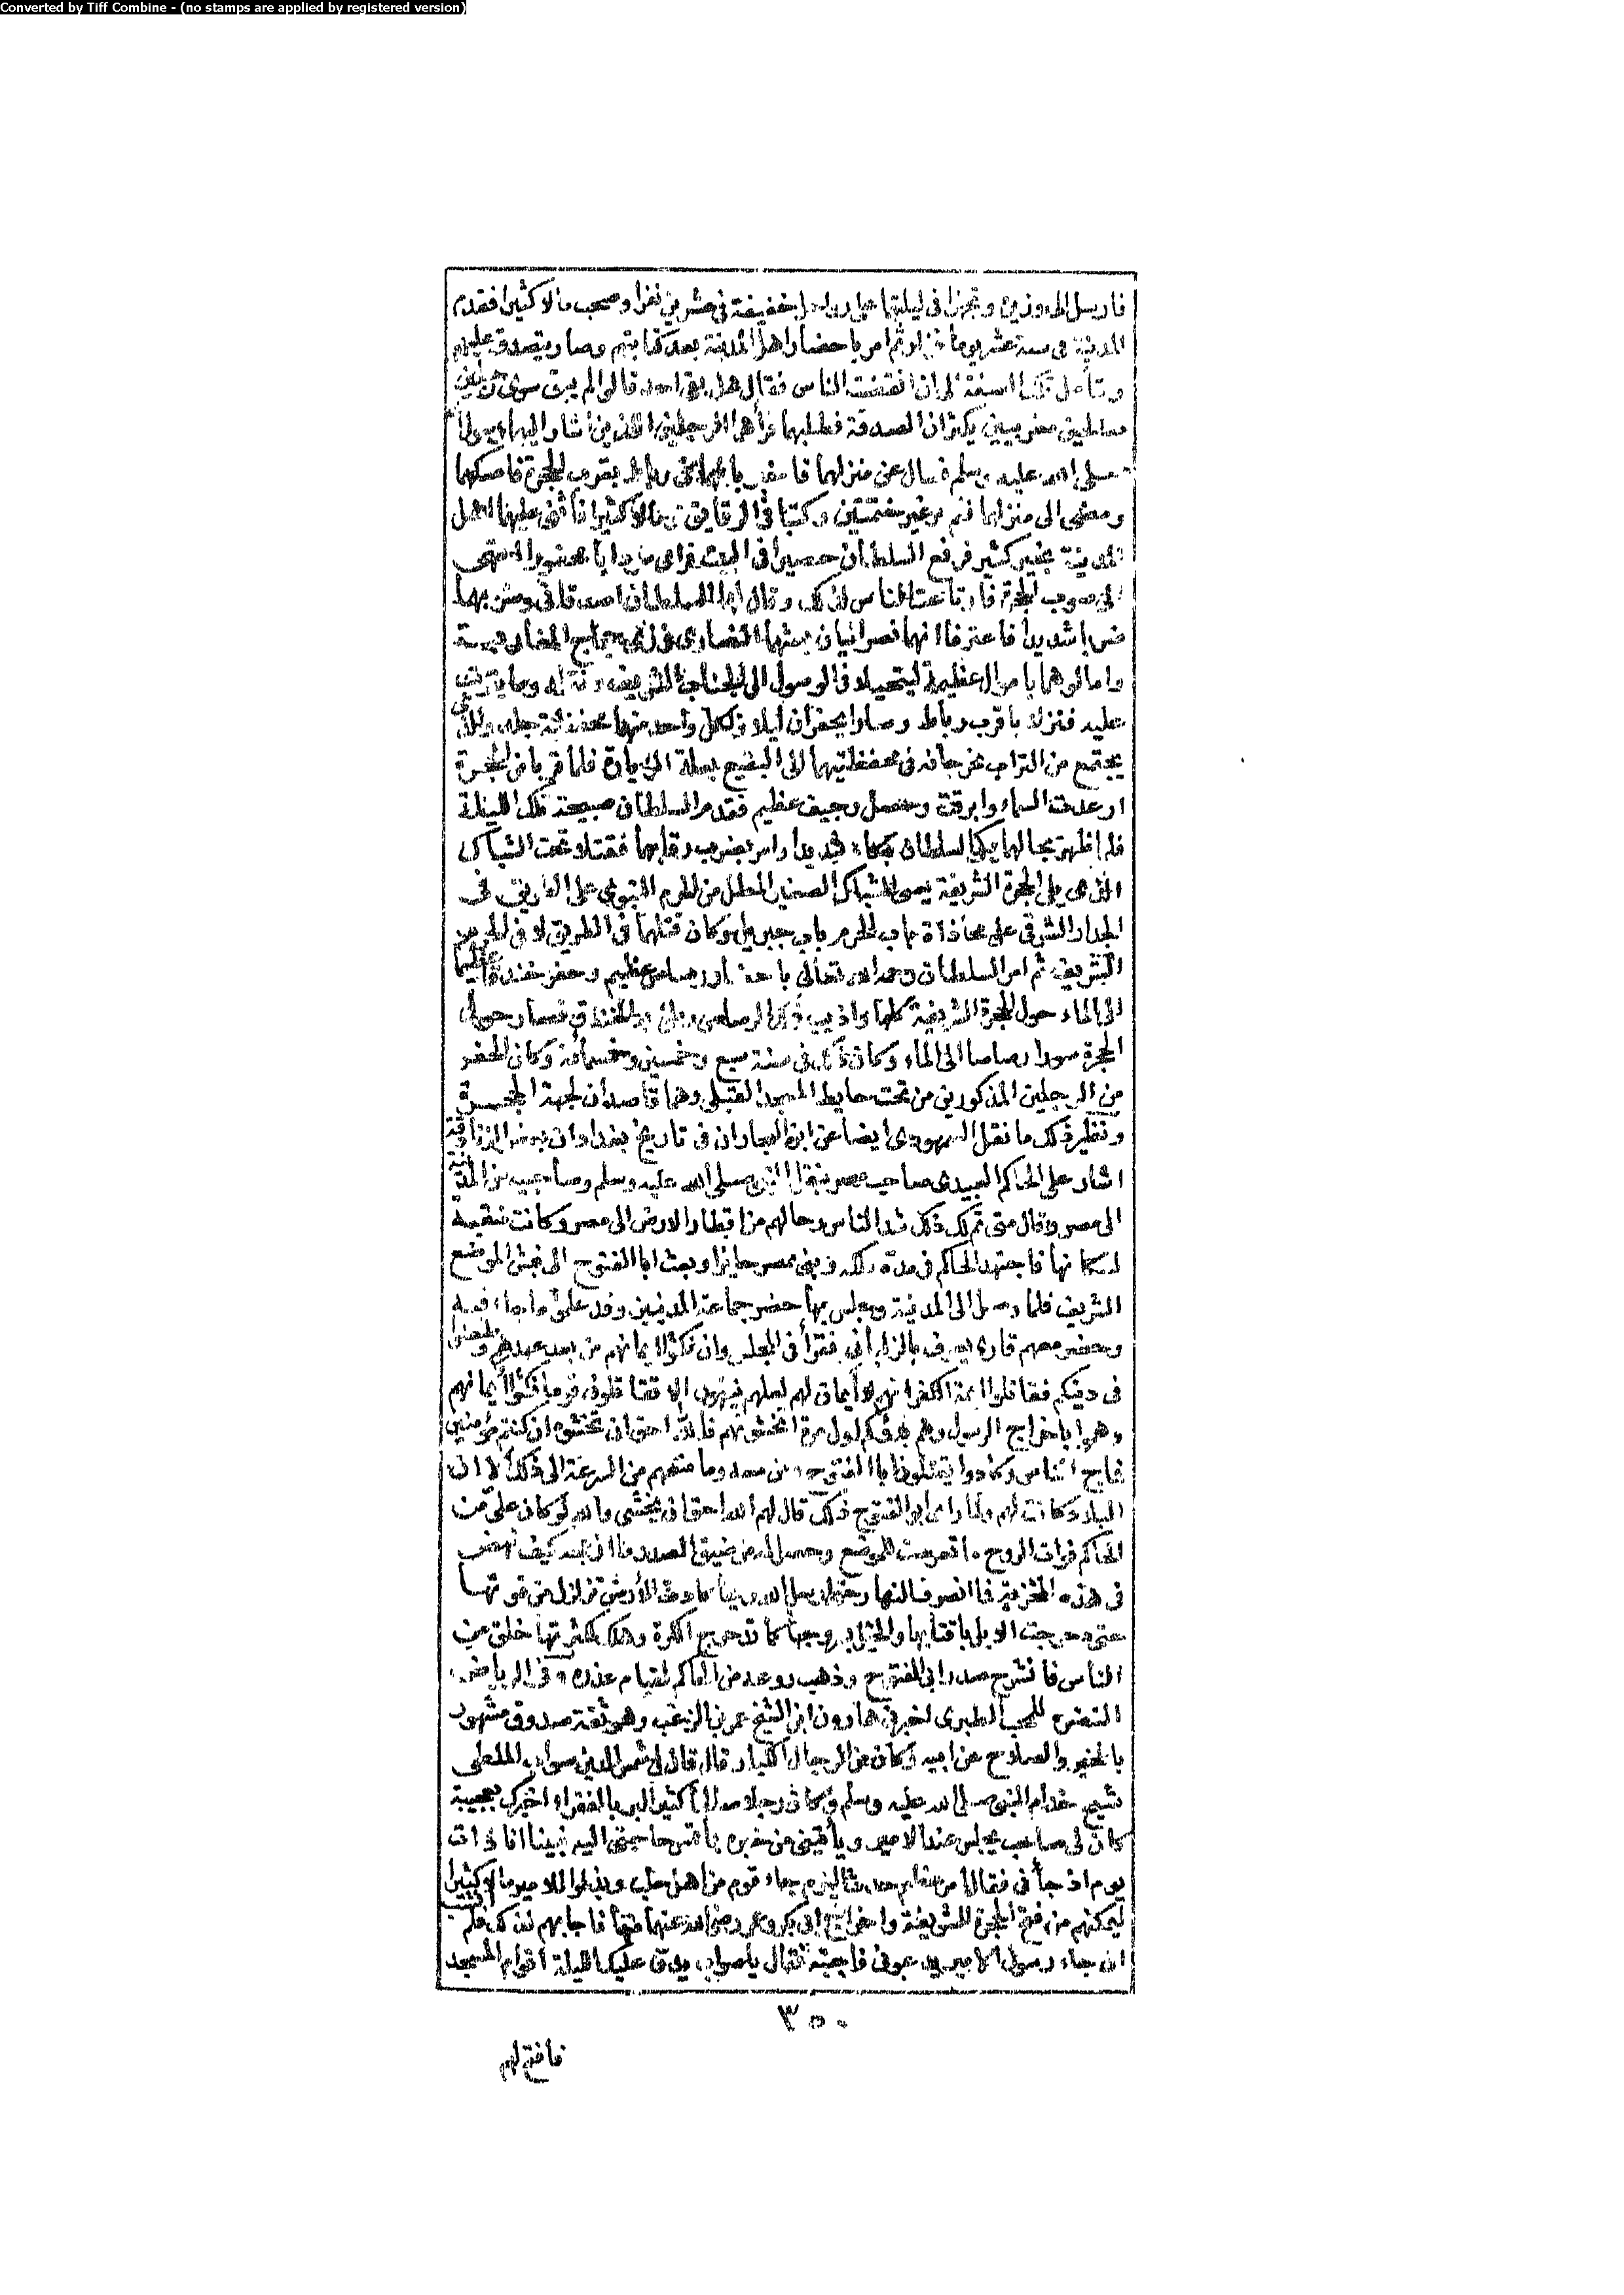 Converted by Tiff Combine - (no stamps are applied by registered version)
فارسل الى وزيره وتجهزا في ليلتهما على رواحل خفيفة في عشرين نفرا وصحب مالا كثيرا فقدم
المدينة في ستة عشر يوما فزار ثم امر باحضار اهل المدينة بعد كتابتهم وصار يتصدق عليهم
ويتأمل تلك الصفة الى ان انفضت الناس فقال هل بقي احد قالوا لم يبق سوى رجلين
صالحين مغربيين يكثران الصدقة فطلبهما فرأهما الرجلين اللذين أشار اليهما رسول الله
صلى الله عليه وسلم فسال عن منزلهما فاخبر بانهما في رباط بقرب الحجرة فامسكهما
ومضى الى منزلهما فلم ير غير ختمتين وكتبا في الرقايق ومالا كثيرا فأثنى عليهما اهل
المدينة بخير كثير فرفع السلطان حصيرا في البيت فراى سردابا محفورا انتهى
الى صوب الحجرة فارتاعت الناس لذلك وقال لهما السلطان اصدقاني وضربهما
ضربا شديدا فاعترفا انهما نصرانيان بعثهما النصارى في زي حجاج المغاربة
وامالوهما باموال عظيمة ليتحيلا في الوصول الى الجناب الشريف ونقله وما يترتب
عليه فنزلا باقرب رباط وصارا يحفران ليلا ولكل واحد منهما محفظة جلد والذي
يجتمع من التراب يخرجانه في محفظتيهما الى البقيع بعلة الزيارة فلما قربا من الحجرة
ارعدت السماء وابرقت وحصل رجيف عظيم فقدم السلطان صبيحة تلك الليلة
فلما ظهر حالهما بكى السلطان بكاء شديدا وامر بضرب رقابهما فقتلا تحت الشباك
الذي يلي الحجرة الشريفة يسمى الشباك الصغير المطل من الحرم النبوي على الطريق في
الجدار الشرقي على محاذاة باب الحرم باب جبريل وكان قتلهما في الطريق لا في الحرم
الشريف ثم امر السلطان رحمه الله تعالى باحضار رصاص عظيم وحفر خندقا عظيما
الى الماء حول الحجرة الشريفة كلها واذيب ذلك الرصاص وملئ به الخندق فصار حول
الحجرة سورا رصاصا الى الماء وكان ذلك في سنة سبع وخمسين وخمسمائة وكان الحفر
من الرجلين المذكورين من تحت حايط المسجد القبلي وهما قاصدان لجهة الحجرة
ونظير ذلك ما نقل السمهودي ايضا عن ابن النجار ان في تاريخ بغداد ان بعض الزنادقة
اشار على الحاكم العبيدي صاحب مصر بنقل النبي صلى الله عليه وسلم وصاحبيه من المدينة
الى مصر وقال متى تم لك ذلك شد الناس رحالهم من اقطار الارض الى مصر وكانت منقبة
لسكانها فاجتهد الحاكم في مدة وبنى بمصر حايزا وبعث ابا الفتوح الى نبش الموضع
الشريف فلما وصل الى المدينة وجلس بها حضر جماعة المدنيين وقد علموا ما جاء فيه
وحضر معهم قارئ يعرف بالزلباني فقرأ في المجلس وان نكثوا ايمانهم من بعد عهدهم وطعنوا
في دينكم فقاتلوا ائمة الكفر انهم لا أيمان لهم لعلهم ينتهون الا تقاتلون قوما نكثوا أيمانهم
وهموا باخراج الرسول وهم بدؤكم اول مرة اتخشونهم فالله احق ان تخشوه ان كنتم مؤمنين
فماج الناس وكادوا يقتلون ابا الفتوح ومن معه وما منعهم من السرعة الى ذلك الا ان
البلاد كانت لهم ولما راى ابو الفتوح ذلك قال لهم الله احق ان يخشى والله لو كان علي من
الحاكم فوات الروح ما تعرضت للموضع وحصل له من ضيق الصدر ما ازعجه كيف نهض
في هذه المخزية فما انصرف النهار حتى ارسل الله ريحا كادت الأرض تزلزل من قوتها
حتى دحرجت الابل باقتابها والخيل بسروجها كما تدحرج الكرة وهلك اكثرها وخلق من
الناس فانشرح صدر ابي الفتوح وذهب روعه من الحاكم لقيام عذره وفي الرياض
النضرة للمحب الطبري اخبرني هارون ابن الشيخ عمر بن الزغب وهو ثقة صدوق مشهور
بالخير والصلاح عن ابيه وكان من الرجال الكبار قال قال لي شمس الدين صواب الملطي
شيخ خدام النبي صلى الله عليه وسلم وكان رجلا صالحا كثير البر بالفقراء اخبرك بعجيبة
كان لي صاحب يجلس عند الامير ويأتيني من خبره بما تمس حاجتي اليه فبينا انا ذات
يوم اذ جاءني فقال امر عظيم حدث اليوم جاء قوم من اهل حلب وبذلوا للامير مالا كثيرا
ليمكنهم من فتح الحجرة الشريفة واخراج ابي بكر وعمر رضي الله عنهما منها فاجابهم لذلك فلم
ان جاء رسول الامير يدعوني فاجبته فقال يا صواب يدق عليك الليلة اقوام المسجد
٣٥٠
فافتح لهم